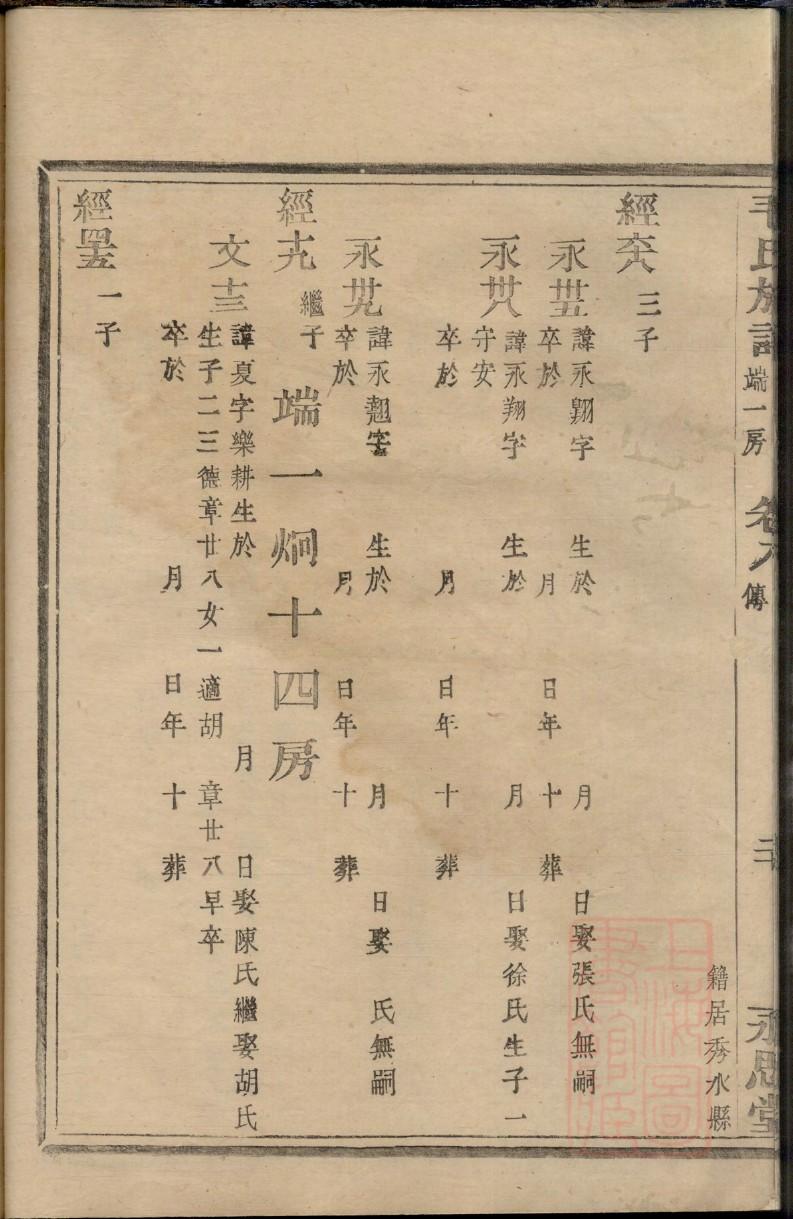 毛氏族譜 端一房 卷八 傳 永思堂
籍居秀水縣
經 三子
永卅五 諱永翺字 生於 月 日娶張氏無嗣
卒於 月 日年 十 葬
永卅八 諱永翔字守安 生於 月 日娶徐氏生子一
卒於 月 日年 十 葬
永卅九 諱永翹字 生於 月 日娶 氏無嗣
卒於 月 日年 十 葬
端一炯十四房
經 繼子
文十三 諱夏字樂耕生於 月 日娶陳氏繼娶胡氏
生子二三德章廿八女一適胡 章廿八早卒
卒於 月 日年 十 葬
經四十五 一子
上海圖書館藏